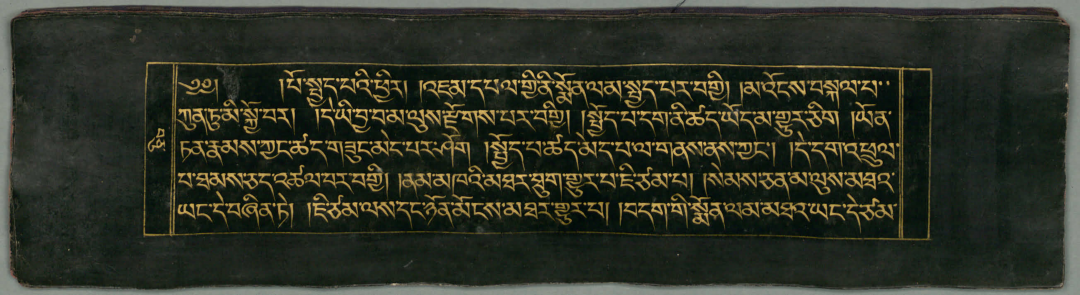 ༄༅། །པོ་སྤྱད་པའི་ཕྱིར། །འཇམ་དཔལ་གྱི་ནི་སྨོན་ལམ་སྤྱད་པར་བགྱི། །མ་འོངས་བསྐལ་པ་
ཀུན་ཏུ་མི་སྐྱོ་བར། །དེ་ཡི་བྱ་བ་མ་ལུས་རྫོགས་པར་བགྱི། །སྤྱོད་པ་དག་ནི་ཚད་ཡོད་མ་གྱུར་ཅིག །ཡོན་
ཏན་རྣམས་ཀྱང་ཚད་གཟུང་མེད་པར་ཤོག །སྤྱོད་པ་ཚད་མེད་པ་ལ་གནས་ནས་ཀྱང་། །དེ་དག་འཕྲུལ་
པ་ཐམས་ཅད་འཚལ་བར་བགྱི། །ནམ་མཁའི་མཐར་ཐུག་གྱུར་པ་ཇི་ཙམ་པ། །སེམས་ཅན་མ་ལུས་མཐའ་
ཡང་དེ་བཞིན་ཏེ། །ཇི་ཙམ་ལས་དང་ཉོན་མོངས་མཐར་གྱུར་པ། །བདག་གི་སྨོན་ལམ་མཐའ་ཡང་དེ་ཙམ་